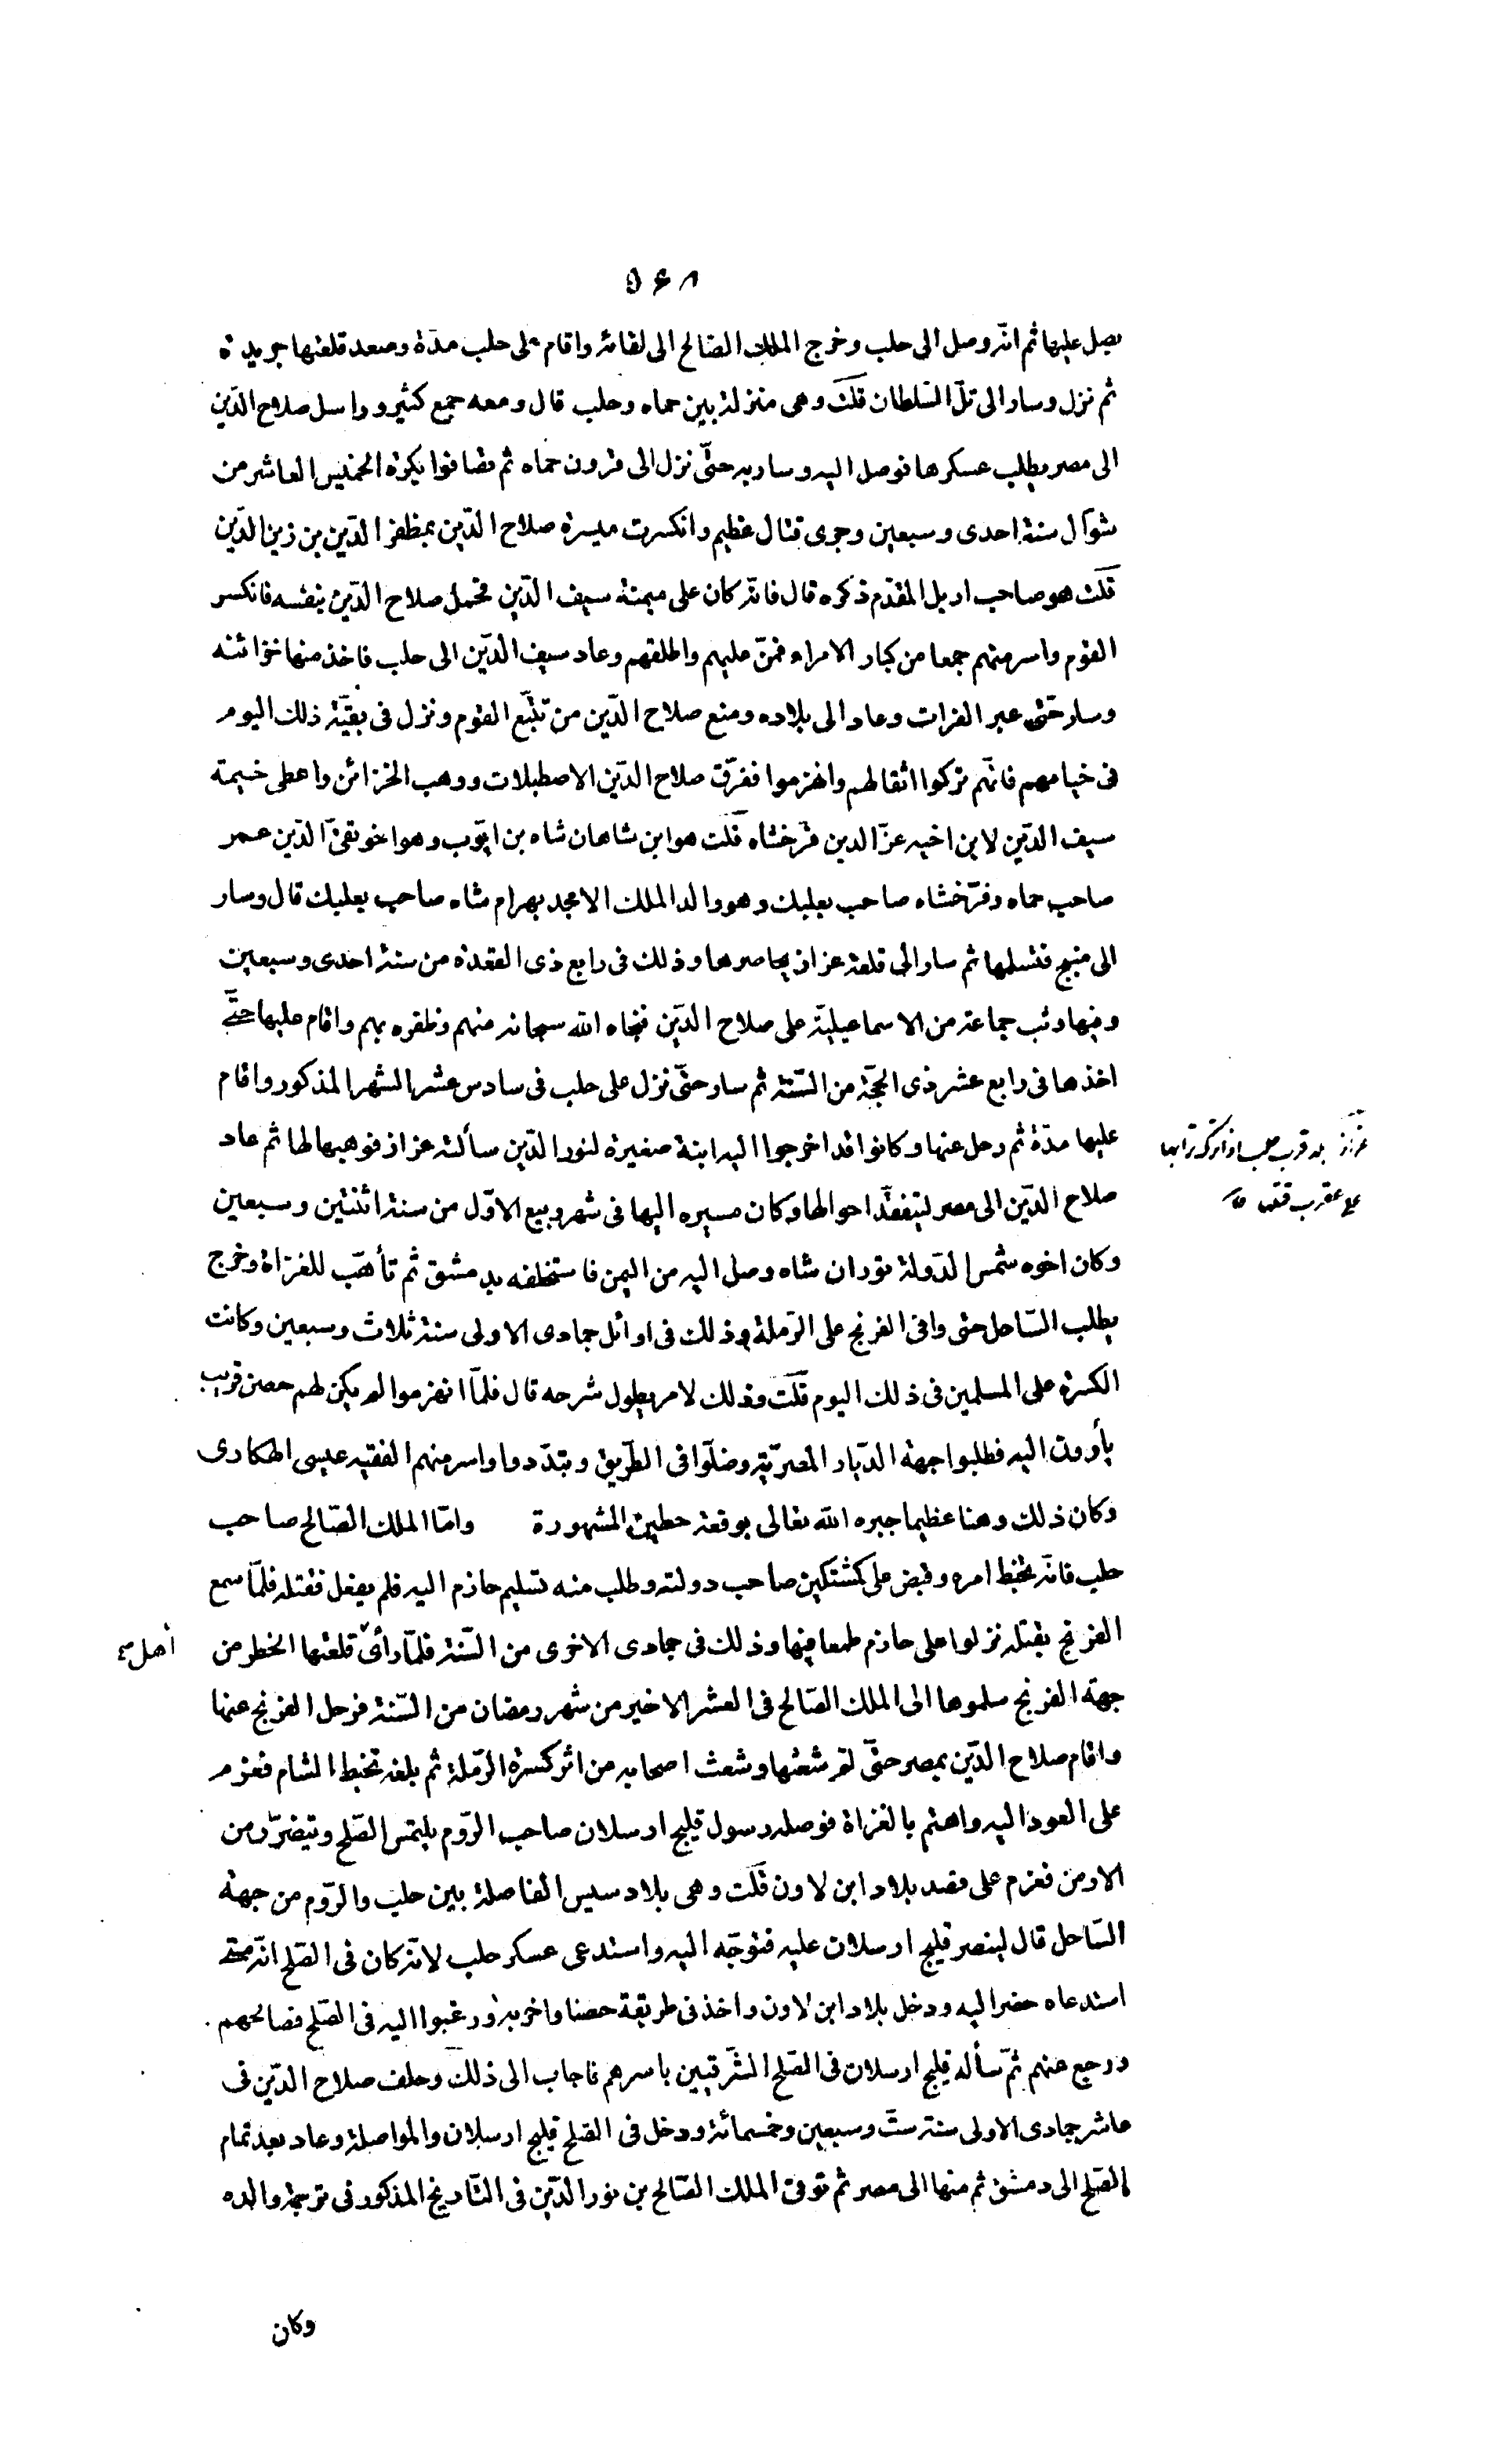 ٥٤٨
يصل عليها ثم انّه وصل الى حلب وخرج الملك الصالح الى لقائه واقام على حلب مدّة وصعد قلعتها جريدة
ثم نزل وسار الى تلّ السّلطان قلت وهى منزلة بين حماه وحلب قال ومعه جمع كثير وراسل صلاح الدّين
الى مصر يطلب عسكرها فوصل اليه وسار به حتّى نزل الى قرون حماه ثم تصافوا بكرة الخميس العاشر من
شوّال سنة احدى وسبعين وجرى قتال عظيم وانكسرت ميسرة صلاح الدّين بمظفر الدّين بن زين الدّين
قلت هو صاحب اربل المقدّم ذكره قال فانّه كان على ميمنة سيف الدّين فحمل صلاح الدّين بنفسه فانكسر
القوم واسر منهم جمعا من كبار الامراء فمنّ عليهم واطلقهم وعاد سيف الدّين الى حلب فاخذ منها خزائنه
وسار حتّى عبر الفرات وعاد الى بلاده ومنع صلاح الدّين من تتبّع القوم ونزل فى بقيّة ذلك اليوم
فى خيامهم فانّهم تركوا اثقالهم وانهزموا ففرّق صلاح الدّين الاصطبلات ووهب الخزائن واعطى خيمة
سيف الدّين لابن اخيه عزّ الدين فرّخشاه قلت هو ابن شاهان شاه بن ايّوب وهو اخو تقىّ الدّين عمر
صاحب حماه وفرّخشاه صاحب بعلبك وهو والد الملك الامجد بهرام شاه صاحب بعلبك قال وسار
الى منبج فتسلمها ثم سار الى قلعة عزاز يحاصرها وذلك فى رابع ذى القعدة من سنة احدى وسبعين
وفيها وثب جماعة من الاسماعيليّة على صلاح الدّين فنجاه الله سبحانه منهم وظفره بهم واقام عليها حتّى
اخذها فى رابع عشر ذى الحجّة من السّنة ثم سار حتّى نزل على حلب فى سادس عشر الشهر المذكور واقام
عليها مدّة ثم رحل عنها وكانوا قد اخرجوا اليه ابنة صغيرة لنور الدّين سألته عزاز فوهبها لها ثم عاد
عزاز بلد قرب حلب اذا ترك ترابها
على عقرب قتلها
صلاح الدّين الى مصر ليتفقّد احوالها وكان مسيره اليها فى شهر ربيع الاوّل من سنة اثنتين وسبعين
وكان اخوه شمس الدّولة توران شاه وصل اليه من اليمن فاستخلفه بدمشق ثم تأهّب للغزاة وخرج
يطلب السّاحل حتى وافى الفرنج على الرّملة وذلك فى اوائل جمادى الاولى سنة ثلاث وسبعين وكانت
الكسرة على المسلمين فى ذلك اليوم قلت وذلك لامر يطول شرحه قال فلمّا انهزموا لم يكن لهم حصن قريب
يأوون اليه فطلبوا جهة الدّيار المصريّة وضلّوا فى الطّريق وتبدّدوا واسر منهم الفقيه عيسى الهكارى
وكان ذلك وهنا عظيما جبره الله تعالى بوقعة حطين المشهورة وامّا الملك الصّالح صاحب
حلب فانّه تخبّط امره وقبض على كمشتكين صاحب دولته وطلب منه تسليم حارم اليه فلم يفعل فقتله فلمّا سمع
الفرنج بقتله نزلوا على حارم طمعا فيها وذلك فى جمادى الاخرى من السّنة فلمّا رأى قلعتها الخطر من
أهل
جهة الفرنج سلموها الى الملك الصّالح فى العشر الاخير من شهر رمضان من السّنة فرحل الفرنج عنها
واقام صلاح الدّين بمصر حتّى لمّ شعثها وشعث اصحابه من اثر كسرة الرّملة ثم بلغه تخبّط الشام فعزم
على العود اليه واهتم بالغزاة فوصله رسول قليج ارسلان صاحب الرّوم يلتمس الصّلح ويتضرّر من
الارمن فعزم على قصد بلاد ابن لاون قلت وهى بلاد سيس الفاصلة بين حلب والرّوم من جهة
السّاحل قال لينصر قليج ارسلان عليه فتوجّه اليه واستدعى عسكر حلب لانّه كان فى الصّلح انّه متى
استدعاه حضر اليه ودخل بلاد ابن لاون واخذ فى طريقة حصنا واخربه ورغبوا اليه فى الصّلح فصالحهم
ورجع عنهم ثمّ سأله قليج ارسلان فى الصّلح الشّرقيين باسرهم فاجاب الى ذلك وحلف صلاح الدّين فى
عاشر جمادى الاولى سنة ستّ وسبعين وخمسمائة ودخل فى الصّلح قليج ارسلان والمواصلة وعاد بعد تمام
الصّلح الى دمشق ثم منها الى مصر ثم توفى الملك الصّالح بن نور الدّين فى التّاريخ المذكور فى ترجمة والده
وكان